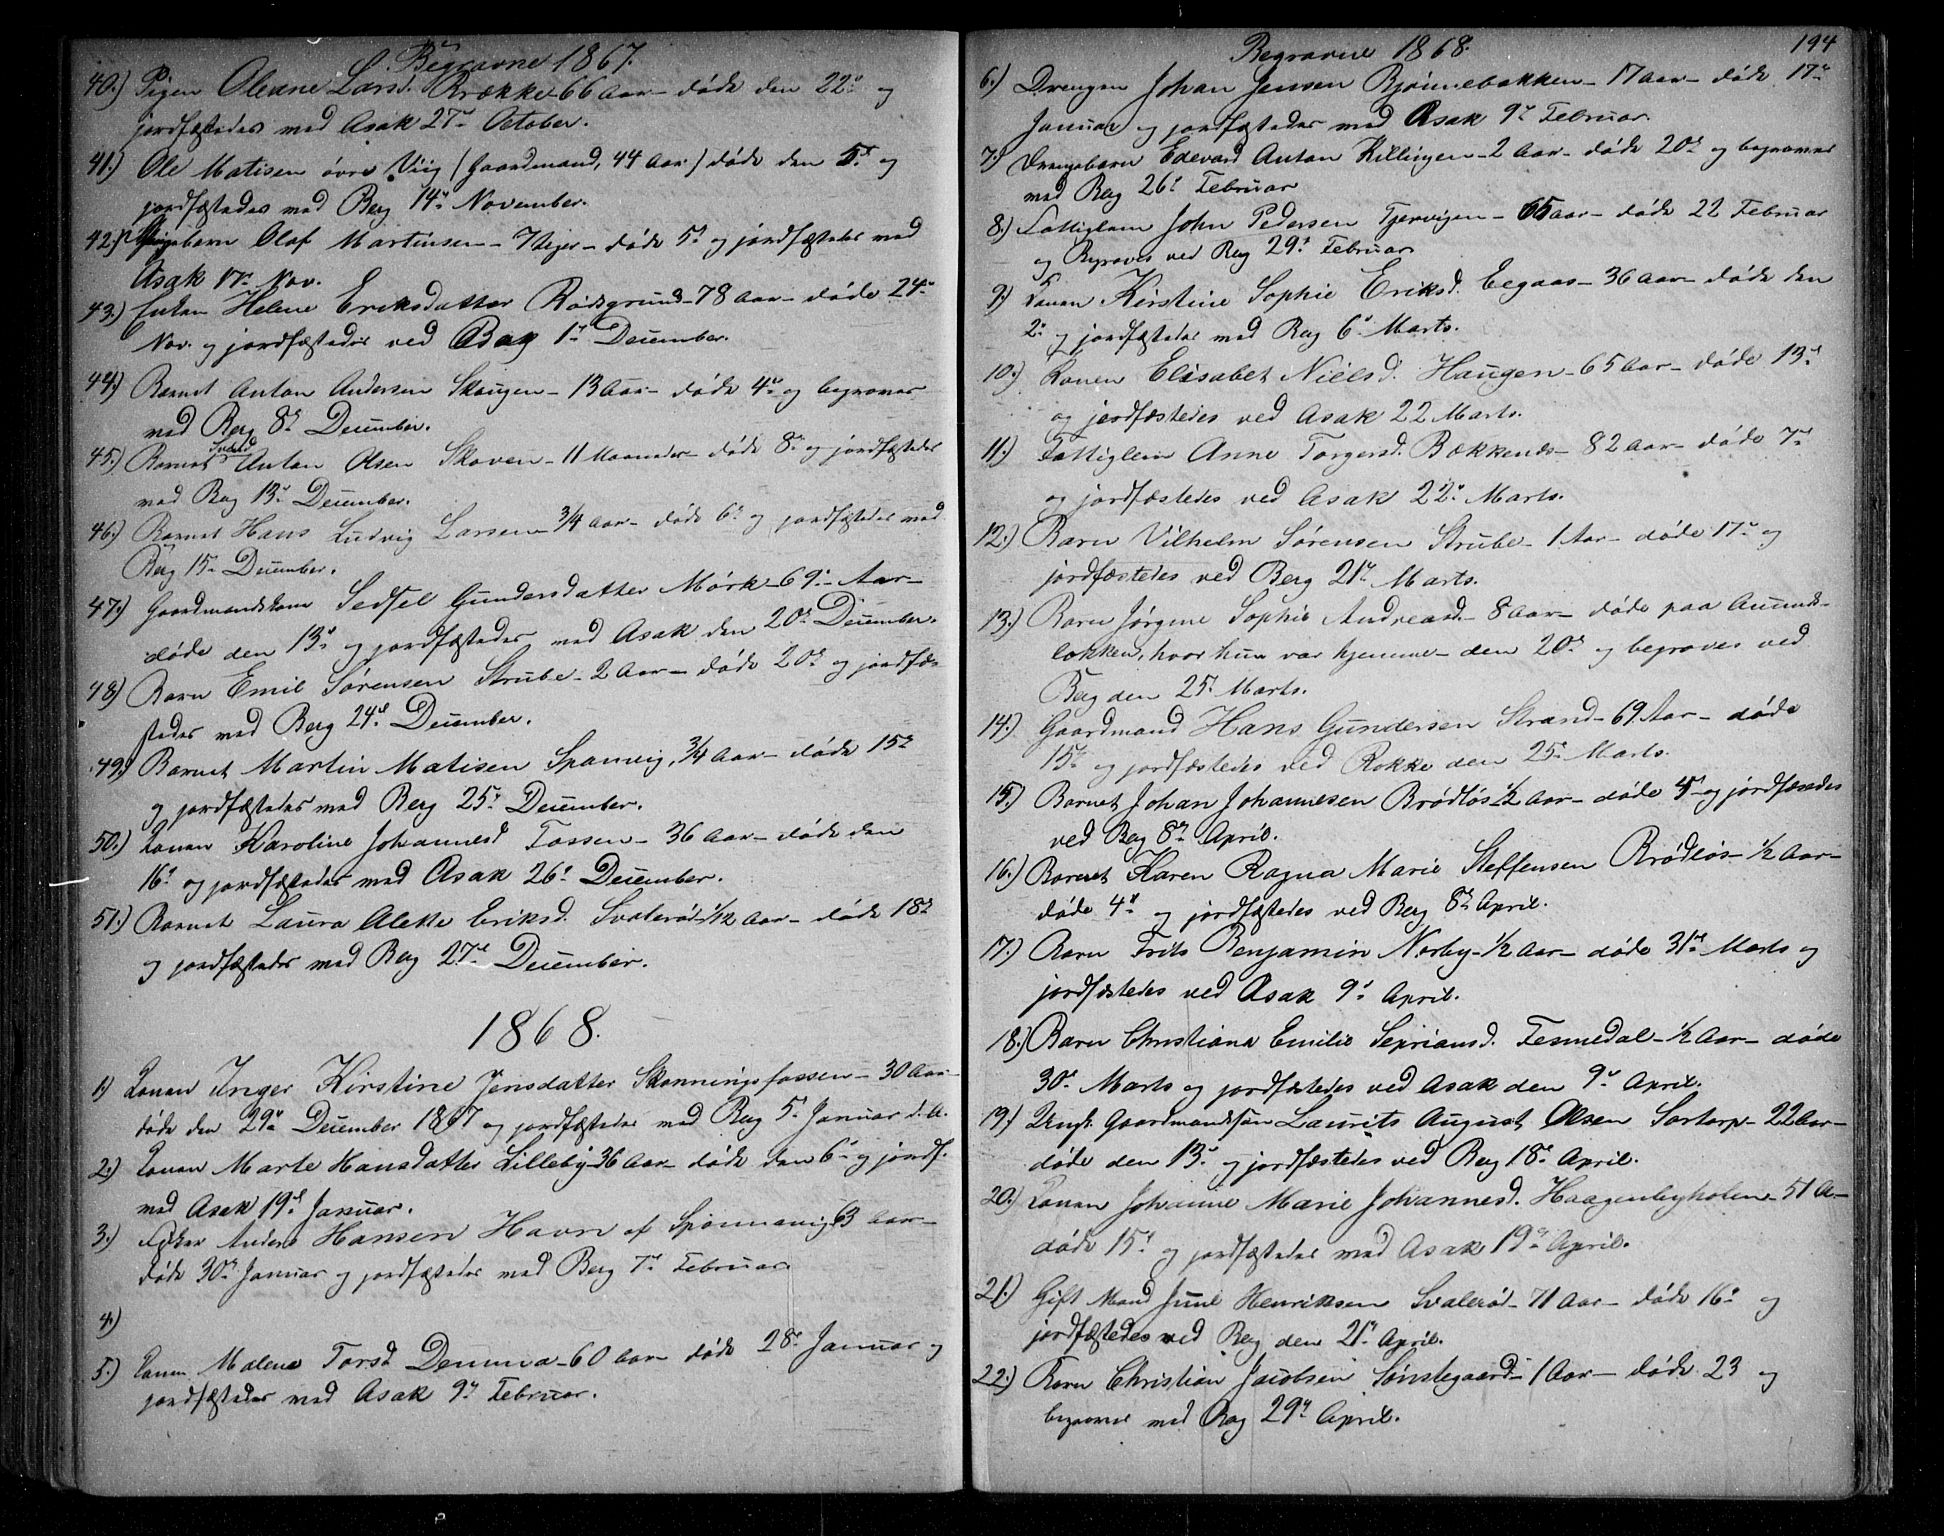 Begravne 1867.
40.) Pigen Olenne Larsd. Brække 66 Aar - døde den 22de og
jordfæstedes ved Asak 27de October.
41.) Ole Matisen øvre Viig (Gaardmand, 44 Aar) døde den 5te og
jordfæstedes ved Berg 14de November.
42.) Drengebarn Olaf Martinsen - 7 Uger - døde 5te og jordfæstedes ved
Asak 17de Nov.
43.) Enken Helene Eriksdatter Rødsgrund - 78 Aar - døde 24de
Nov. og jordfæstedes ved Asak 1ste December.
44.) Barnet Anton Andersen Skougen - 13 Aar - døde 4de og begraves
ved Berg 8de December.
45.) Barnet Anton Olsen Skoven - 11 Maaneder - døde 8de og jordfæstedes
ved Berg 13de December.
46.) Barnet Hans Ludvig Larsen - 3/4 Aar - døde 6te og jordfæstedes ved
Berg 15de December.
47.) Gaardmandskone Sedsel Gundersdatter Mørk - 69 Aar -
døde den 13de og jordfæstedes ved Asak den 20de December.
48.) Barn Emil Sørensen Strube - 2 Aar - døde 20de og jordfæ-
stedes ved Berg 24de December.
49.) Barnet Martin Matisen Sponvig, 3/4 Aar - døde 15de
og jordfæstedes ved Berg 25de December.
50.) Konen Karoline Johannesd Fossen - 36 Aar - døde den
16de og jordfæstedes ved Asak 26de December.
51.) Barnet Laura Alette Eriksd. Svalerød 1/2 Aar - døde 18de
og jordfæstedes ved Berg 27de December.
1868.
1.) Konen Inger Kirstine Jensdatter Skonningsfossen - 30 Aar -
døde den 29de December 1867 og jordfæstedes ved Berg 5te Januar d. A.
2.) Konen Marte Hansdatter Lilleby - 36 Aar - døde den 6te og jordf.
ved Asak 19de Januar.
3.) Fisker Anders Hansen Havn af Sponnevig 63 Aar -
døde 30de Januar og jordfæstedes ved Berg 7de Februar.
4.)
5.) Konen Malene Torsd Demma - 60 Aar - døde 28de Januar og
jordfæstedes ved Asak 9de Februar.
Begravne 1868.
194
6.) Drengen Johan Jensen Bjønnebakken - 17 Aar - døde 17de
Januar og jordfæstedes ved Asak 9de Februar.
7.) Drengebarn Edevard Anton Killingen - 2 Aar - døde 20de og begraves
ved Berg 26de Februar
8.) Fattiglem John Pedersen Tjervigen - 65 Aar - døde 22 Februar
og Begraves ved Berg 29de Februar
9.) Konen Kirstine Sophie Eriksd. Eegaas - 36 Aar - døde den
2de og jordfæstedes ved Berg 6te Marts.
10.) Konen Elisabet Nielsd. Haugen - 65 Aar - døde 13de
og jordfæstedes ved Asak 22 Marts.
11.) Fattiglem Anne Torgersd. Bækkenes - 82 Aar - døde 7de
og jordfæstedes ved Asak 22de Marts.
12.) Barn Vilhelm Sørensen Strube - 1 Aar - døde 17de og
jordfæstedes ved Berg 21de Marts.
13.) Barn Jørgine Sophie Andreasd. - 8 Aar - døde paa Amunds-
løkken, hvor hun var hjemme - den 20de og begraves ved
Berg den 25de Marts.
14.) Gaardmand Hans Gundersen Strand - 69 Aar - døde
15de og jordfæstedes ved Rokke den 25de Marts.
15.) Barnet Johan Johannesen Brødløs 1/2 Aar - døde 4de og jordfæstedes
ved Berg 8de April.
16.) Barnet Karen Ragna Marie Steffensen Brødløs - 1/2 Aar -
døde 4de og jordfæstedes ved Berg 8de April.
17.) Barn Frits Benjamin Norby - 1/2 Aar - døde 31te Marts og
jordfæstedes ved Asak 9de April.
18.) Barn Christiana Emilie Sepriansd. Fesmedal - 1/2 Aar - døde
30de Marts og jordfæstedes ved Asak den 9de April.
19.) Ungk. Gaardmandssøn Laurits August Olsen Sortorp - 22 Aar -
døde den 13de og jordfæstedes ved Berg 18de April.
20.) Konen Johanne Marie Johannesd. Haagenbyholen - 51 A -
døde 15de og jordfæstedes ved Asak 19de April.
21.) Gift Mand Juul Henriksen Svalerød - 71 Aar - døde 16de og
jordfæstedes ved Berg den 21de April.
22.) Barn Christian Jacobsen Sønstegaard - 1 Aar - døde 23 og
begraves ved Berg 29de April.